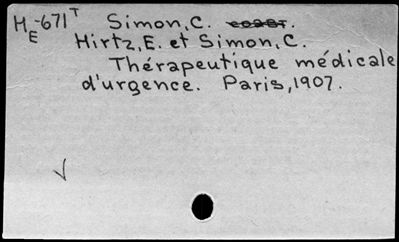 ME-671T Simon, C.
Hirtz, E. et Simon, C.
Thérapeutique médicale
d'urgence. Paris, 1907.